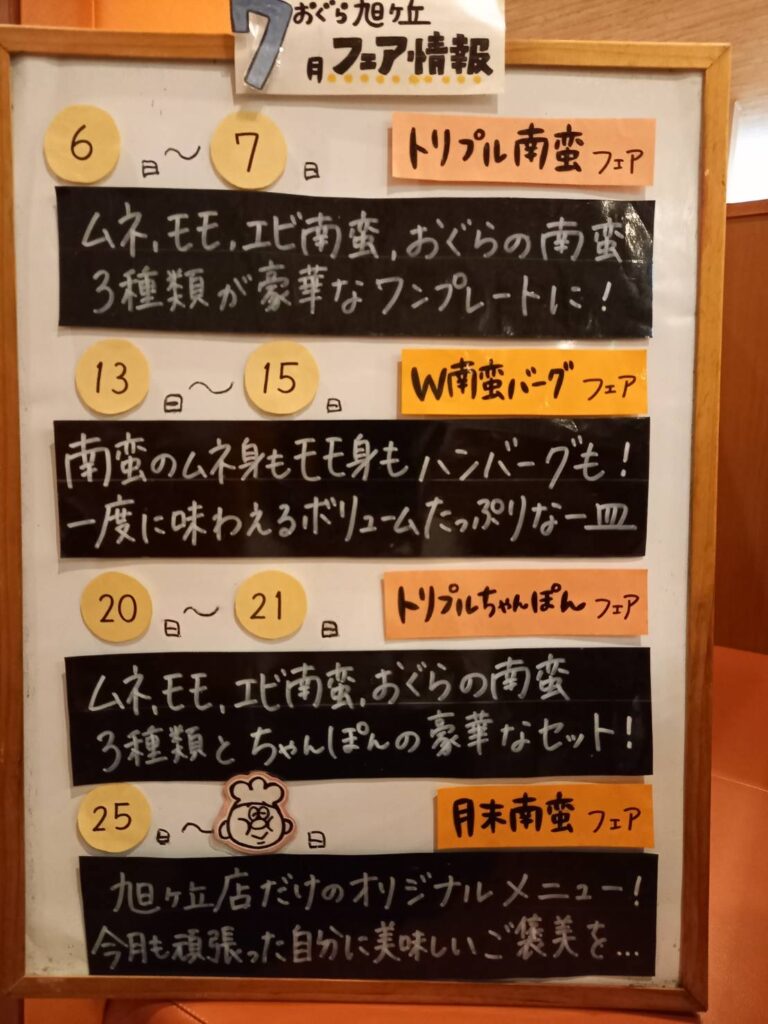 おぐら旭ヶ丘
7月フェア情報
6日〜7日 トリプル南蛮フェア
ムネ,モモ,エビ南蛮,おぐらの南蛮
3種類が豪華なワンプレートに!
13日〜15日 W南蛮バーグフェア
南蛮のムネ身もモモ身もハンバーグも!
一度に味わえるボリュームたっぷりな一皿
20日〜21日 トリプルちゃんぽんフェア
ムネ,モモ,エビ南蛮,おぐらの南蛮
3種類とちゃんぽんの豪華なセット!
25日〜日 月末南蛮フェア
旭ヶ丘店だけのオリジナルメニュー!
今月も頑張った自分に美味しいご褒美を...